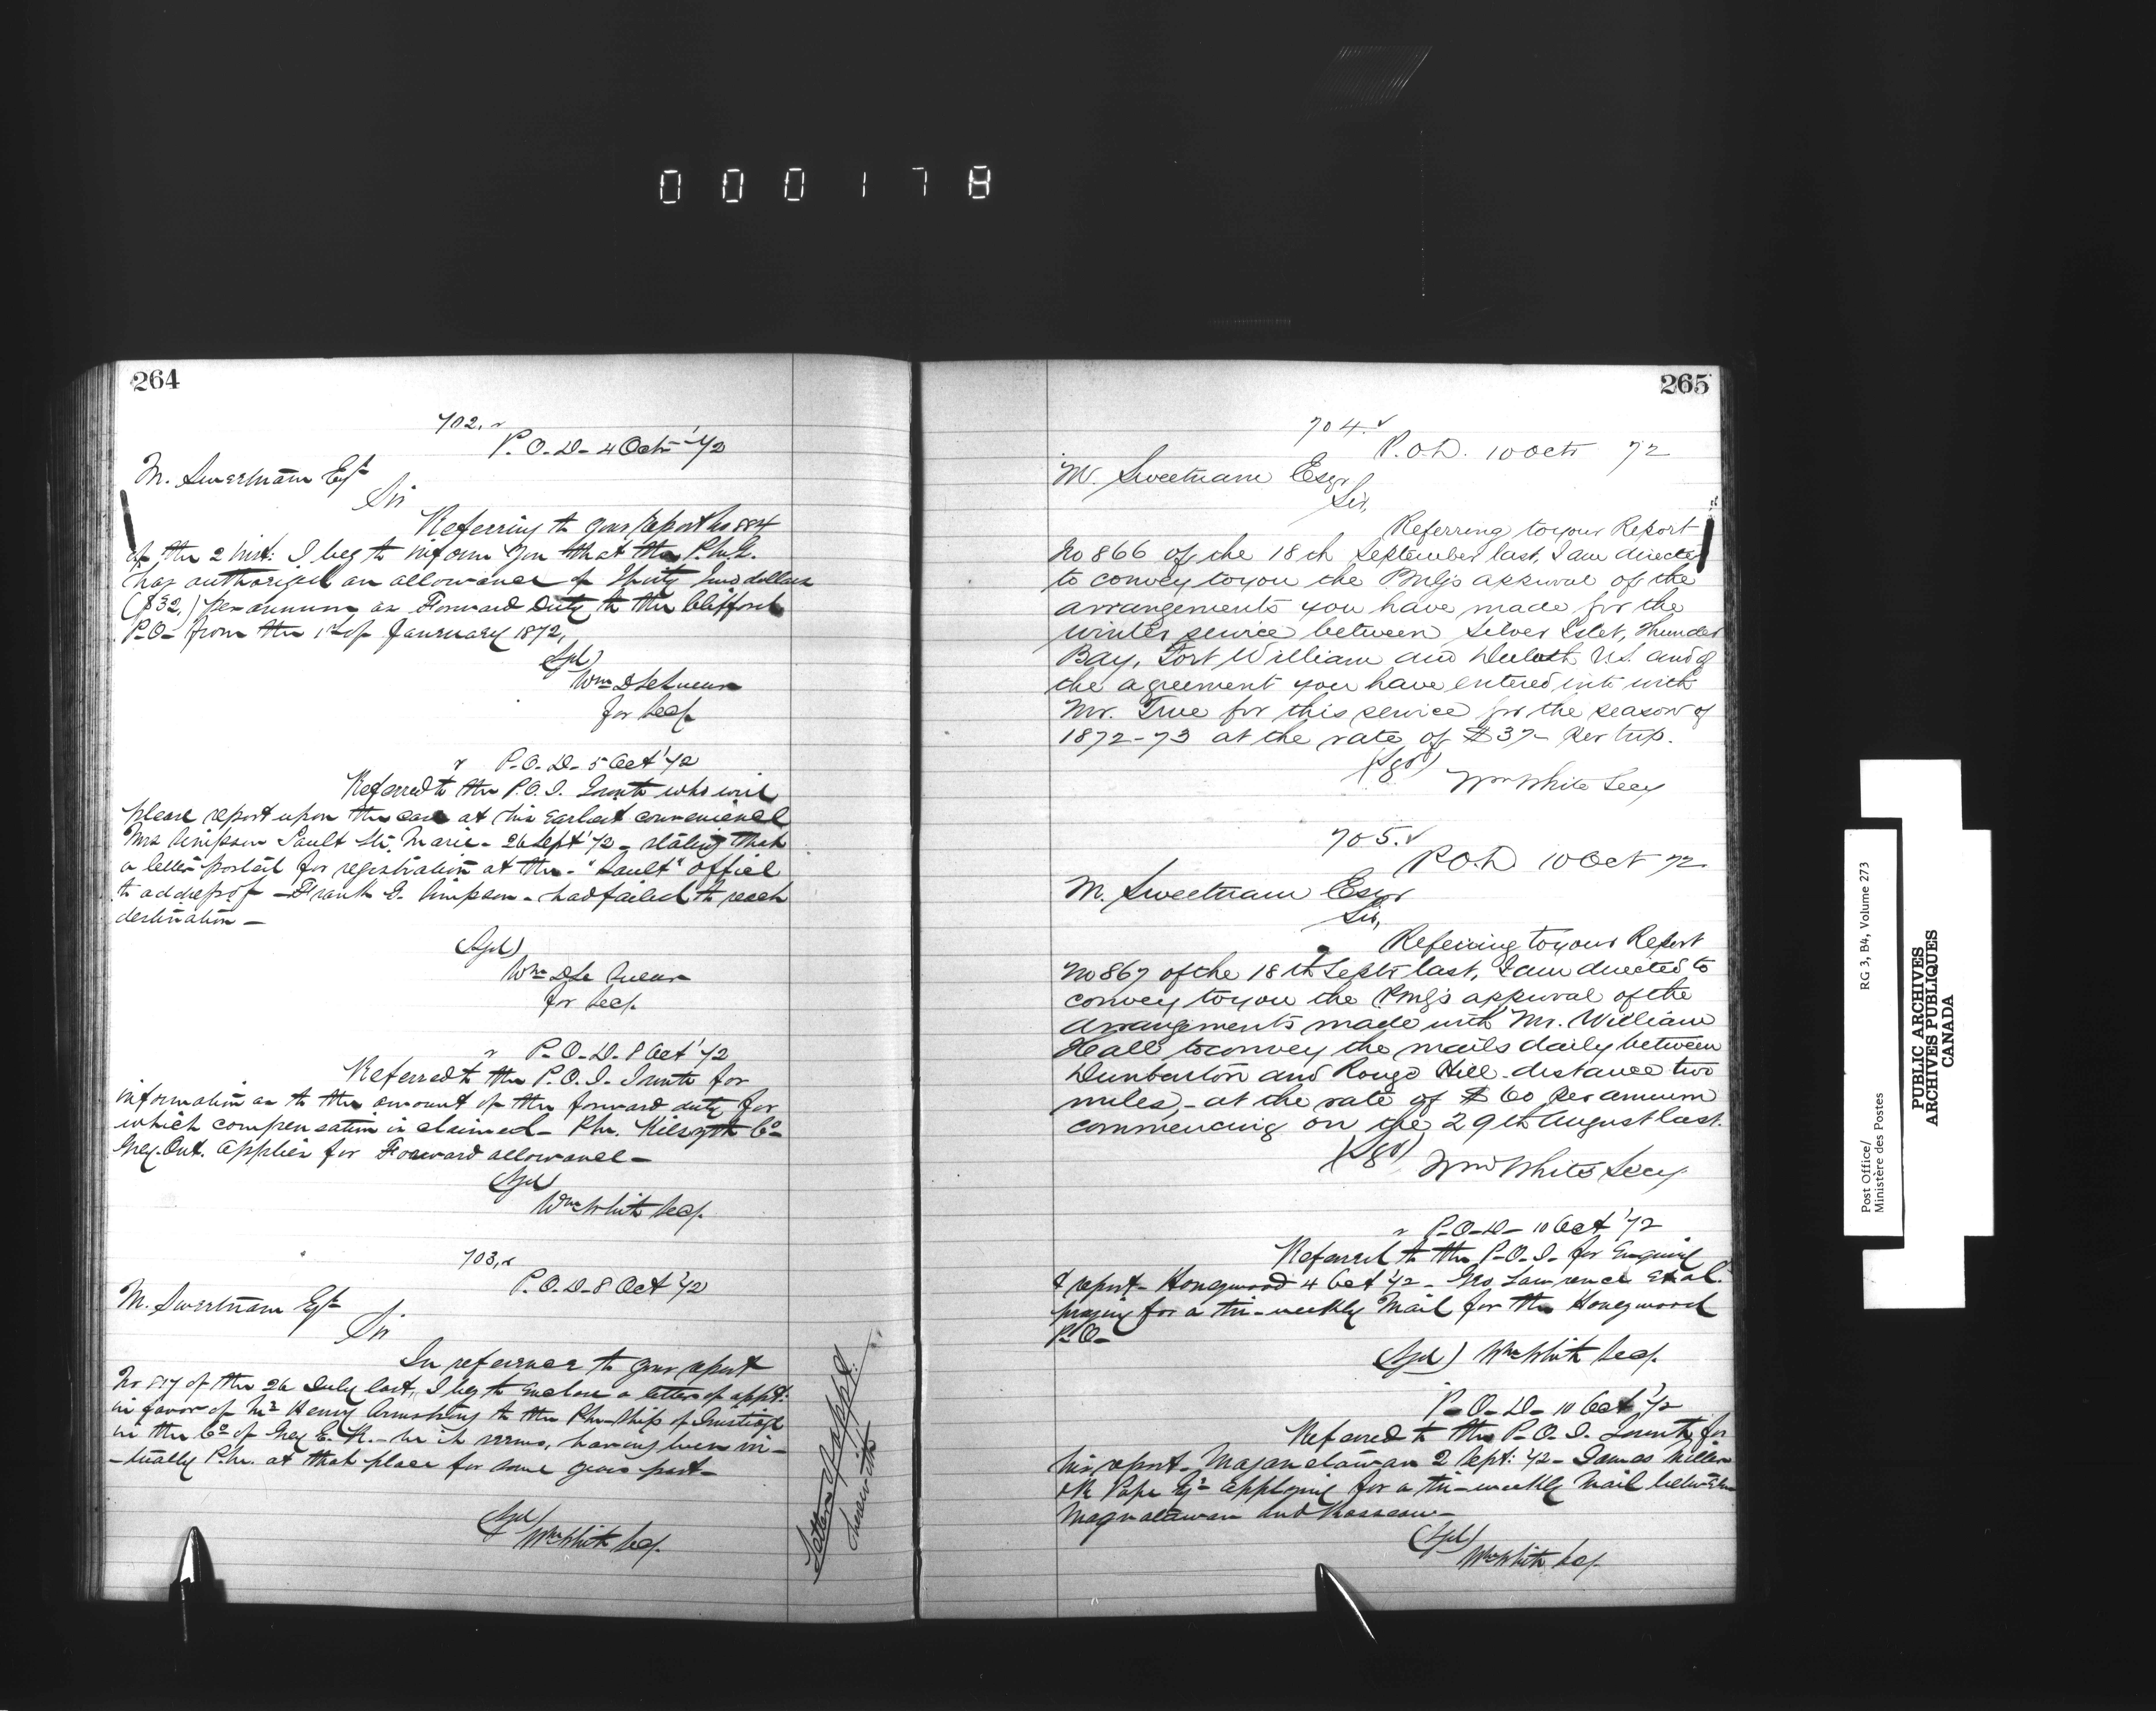 000178
264
702.
P.O.D. 4 Oct '72
M. Sweetnam Esq
Sir
Referring to your report No 884
of the 2 inst: I beg to inform you that the P.M.G.
has authorized an allowance of Thirty Two dollars
($32,) per annum as Forward Duty to the Clifford
P.O. from the 1st of January 1872,
(Sgd)
Wm D LeSueur
for Secy.
P.O.D. 5 Oct '72
Referred to the P.O.I. Toronto who will
please report upon the case at his earliest convenience
Mrs Simpson Sault Ste. Marie - 26 Sept '72 - stating that
a letter posted for registration at the - "Sault" office
to address of - Frank E. Simpson - had failed to reach
destination -
(Sgd)
Wm D Le Sueur
for Secy.
P.O.D. 8 Oct '72
Referred to the P.O.I. Toronto for
information as to the amount of the forward duty for
which compensation is claimed - P.M. Kilsyth Co
Grey Ont. applies for Forward allowance -
(Sgd)
Wm White Secy.
703,
P.O.D. 8 Oct '72
M. Sweetnam Esq
Sir
In reference to your report
No 817 of the 26 July last, I beg to enclose a letter of appt:
in favor of Mr Henry Armstrong to the P.M.ship of
in the Co of Grey E.R. - he it seems, having been vir-
-tually P.M. at that place for some years past -
(Sgd)
Wm White Secy.
Letter of appt:
herewith
265
704.
P.O.D. 10 Oct 72
M. Sweetnam Esqr
Sir,
Referring to your Report
No 866 of the 18th September last, I am directed
to convey to you the PMG's approval of the
arrangements you have made for the
winter service between Silver Islet, Thunder
Bay, Fort William and Duluth U.S. and of
the agreement you have entered into with
Mr. True for this service for the season of
1872-73 at the rate of $37- per trip.
(Sgd)
Wm White Secy
705.
P.O.D 10 Oct 72
M. Sweetnam Esqr
Sir,
Referring to your Report
No 867 of the 18th Septr last, I am directed to
convey to you the PMG's approval of the
arrangements made with Mr. William
Hall to convey the mails daily between
Dunbarton and Rouge Hill - distance two
miles, - at the rate of $60 per annum
commencing on the 29th August last.
(Sgd) Wm White Secy
P.O.D. 10 Oct '72
Referred to the P.O.I. for Enquiry
& report - Honeywood 4 Oct '72 - Geo Lawrence et al.
praying for a tri-weekly Mail for the Honeywood
P.O.
(Sgd) Wm White Secy.
P.O.D. 10 Oct '72
Referred to the P.O.I. Toronto for
his report - Maganetawan 2 Sept: '72 - James Miller
& Pope Esq applying for a tri-weekly Mail between
Magnetawan and Rosseau -
(Sgd)
Wm White Secy.
Post Office/
Ministère des Postes
RG 3, B4, Volume 273
PUBLIC ARCHIVES
ARCHIVES PUBLIQUES
CANADA